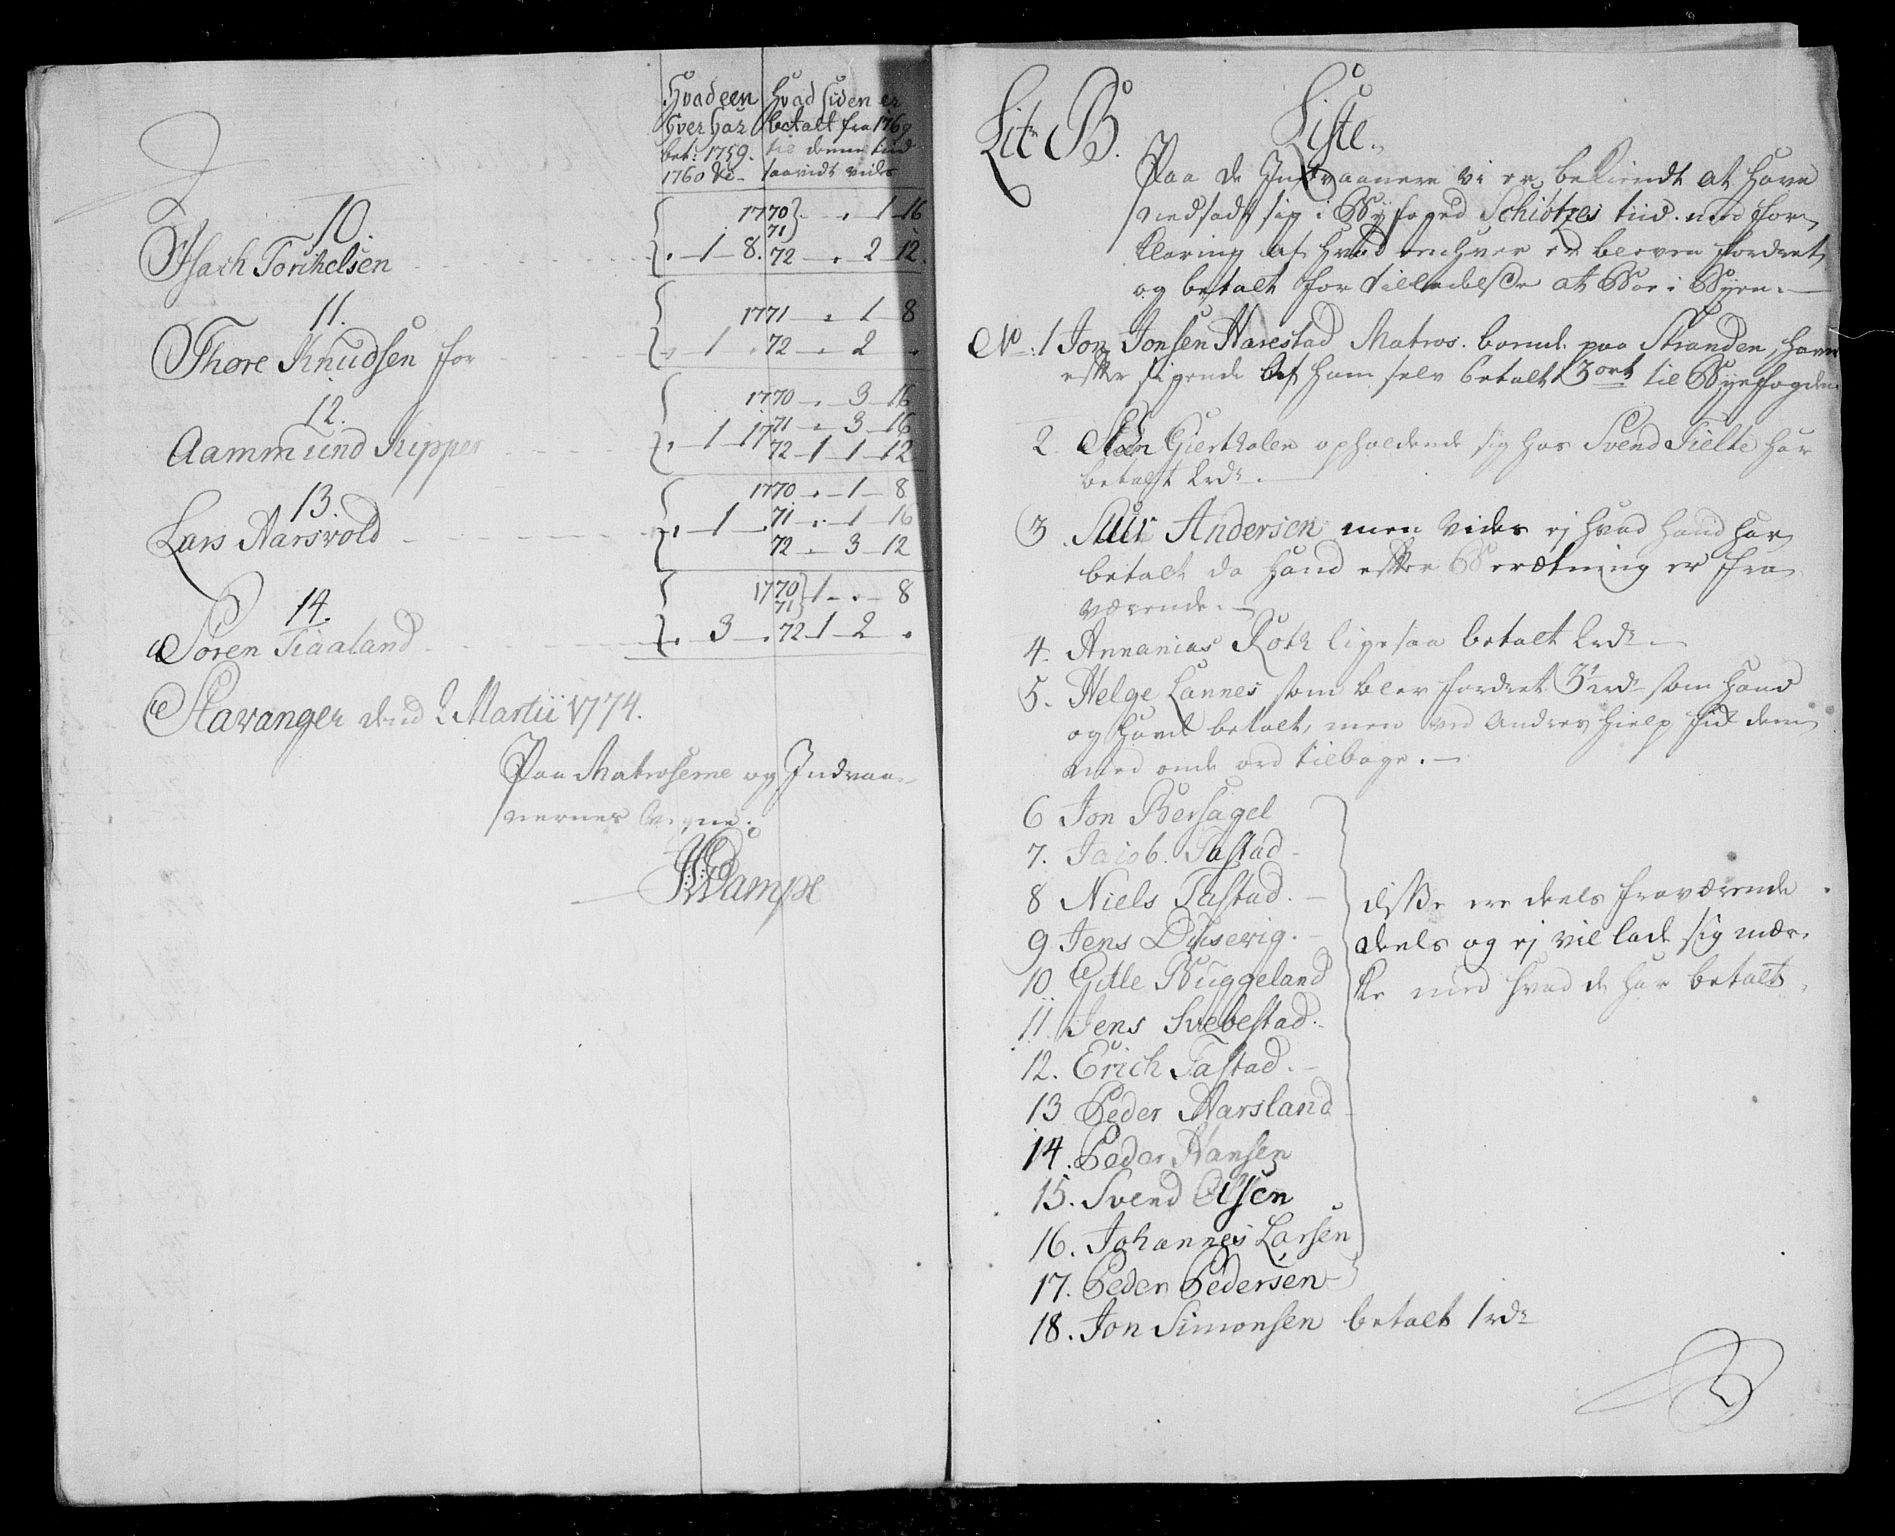 Hvad een
hver har
bet: 1759.
1760 &c
Hvad siden er
betalt fra 1769
til denne tiid
saavidt vides
10.
Isach Torchelsen
1770 } 71 . 1 16
. 1 8. 72 . 2 12.
11.
Thore Knudsen for
1771 . 1 8
. 1 . 72 . 2 .
12.
Aammund Kipper
1770 . 3 16
71 . 3 16
. 1 17 72 1 1 12
13.
Lars Aarsvold
1770 . 1 8
. 1 . 71 . 1 16
72 . 3 12
14.
Søren Tiaaland
1770 } 71 1 . 8
. 3 . 72 1 2 .
Stavanger dend 2 Martii 1774.
Paa Matroserne og Indvaa-
nernes Vegne.
Dampe
Litr B.
Liste
Paa de Indvaanere vi er bekiendt at have
nedsadt sig i Byfoged Schiøtzes tiid. med for-
klaring af hvad enhver er bleven fordret
og betalt for tilladelse at Boe i Byen.
No: 1 Jon Jonsen Harestad Matros. boende paa Stranden, haver
efter sigende af ham selv betalt 3 ort til Byefogden
2 Giertholen opholdende sig hos Svend Tielte har
betalt 2 rdr.
3 Siur Andersen men vides ej hvad hand har
betalt da hand efter Beretning er fra
værende.
4. Annanias Roth ligesaa betalt 2 rdr
5. Helge Lannes som blev fordret 3 rdr som hand
og havde betalt, men ved Andres hielp fik dem
med onde ord tilbage.
6 Jon Bersagel
7. Jacob Tastad
8 Niels Tastad.
9 Jens Dusevig.
10 Gitle Buggeland
11 Jens Svebestad.
12. Erich Tastad.
13 Peder Aarsland
14. Peder Hansen
15. Svend Olsen
16. Johannes Larsen
17. Peder Pedersen
disse ere deels fraværende
deels og ej vil lade sig mær-
ke med hvad de har betalt.
18. Jon Simonsen betalt 1 rdr